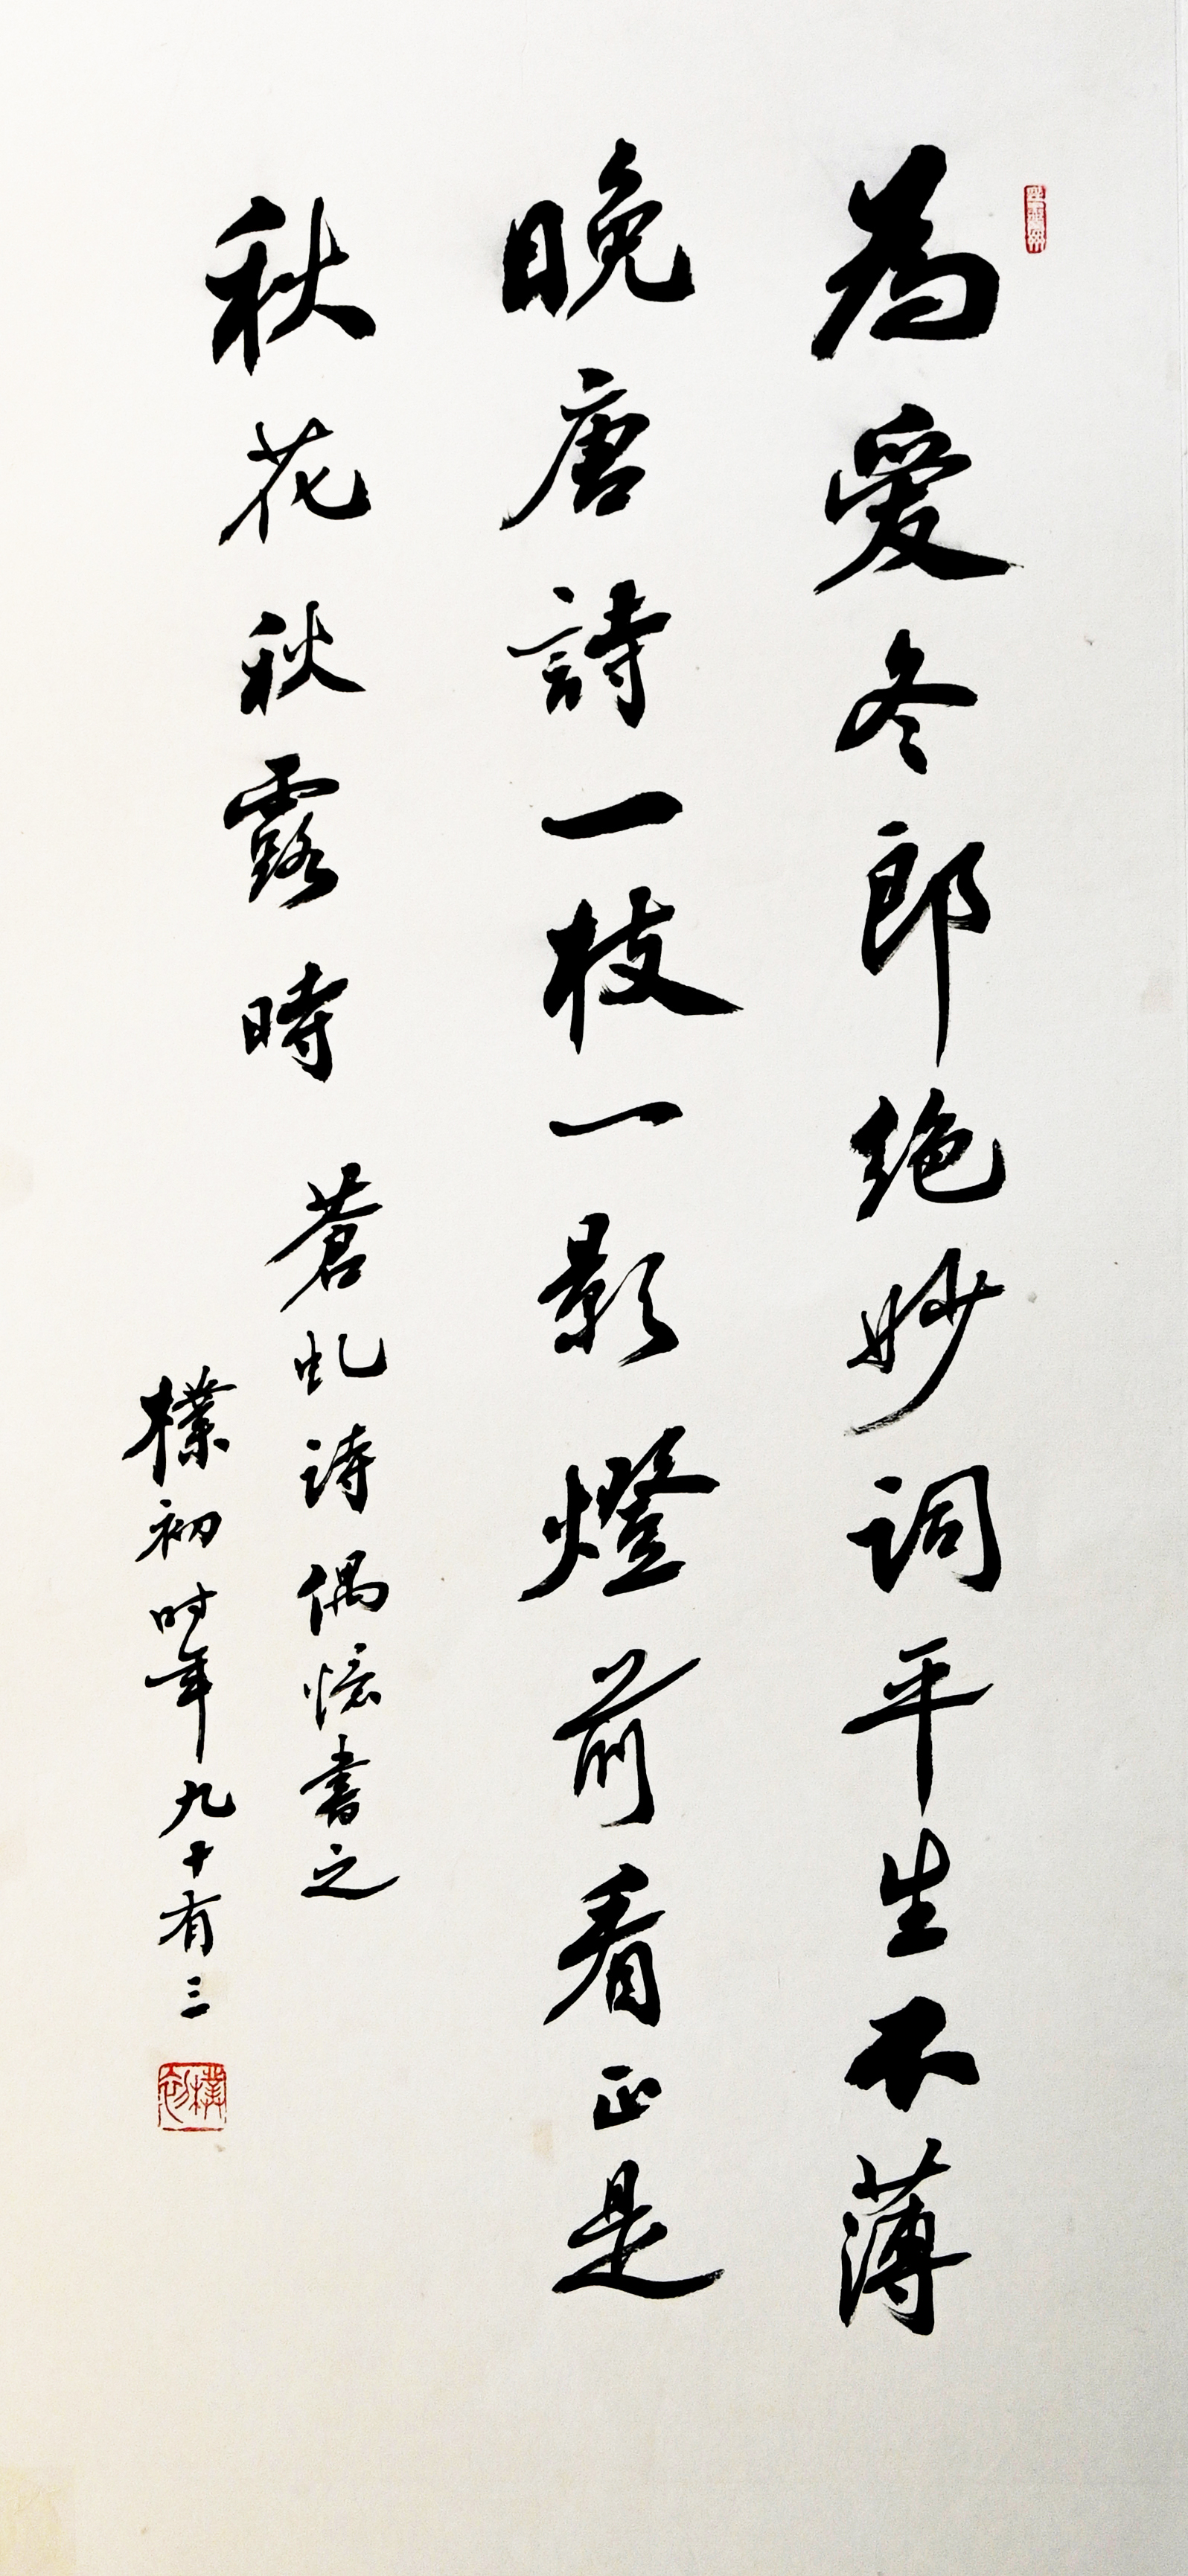 為愛冬郎绝妙词平生不薄
晚唐詩一枝一影燈前看正是
秋花秋露時
蒼虬诗偶憶書之
樸初时年九十有三
樸初